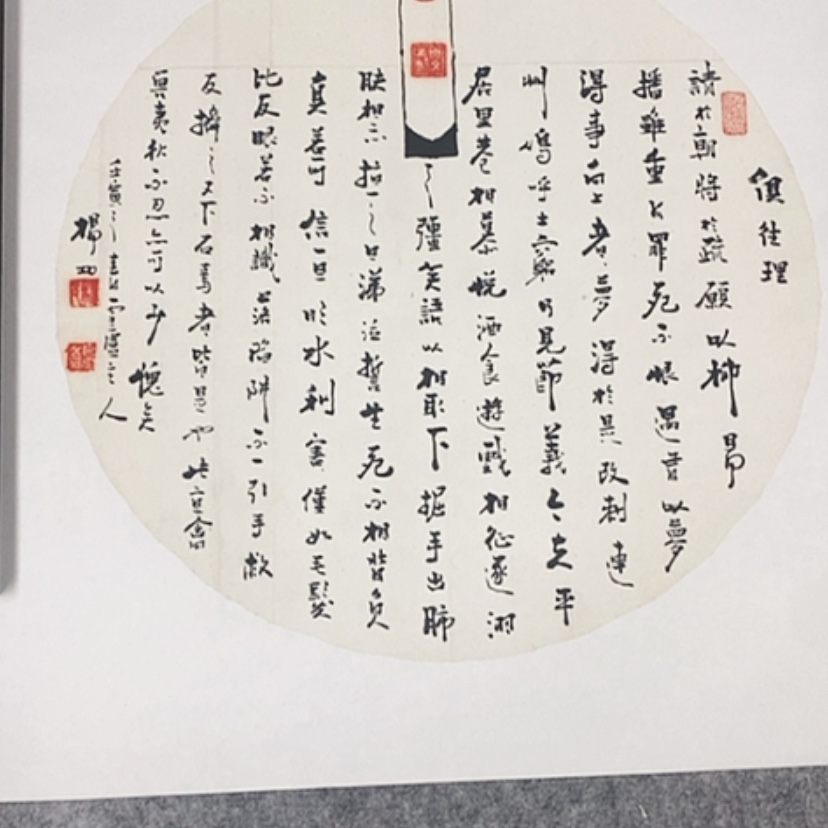 俱往理
請於朝將於疏願以柳易
播雖重罪死不恨遇有以夢
得事白上者夢得於是改刺連
州嗚呼士窮乃見節義今夫平
居里巷相慕悅酒食遊戲相征逐詡
々彊笑語以相取下握手出肺
肝相示指天日涕泣誓生死不相背負
真若可信一旦臨小利害僅如毛髮
比反眼若不相識落陷阱不一引手救
反擠之又下石焉者皆是也此宜禽
獸夷狄不忍亦可以少愧矣
壬寅之春主人
楊